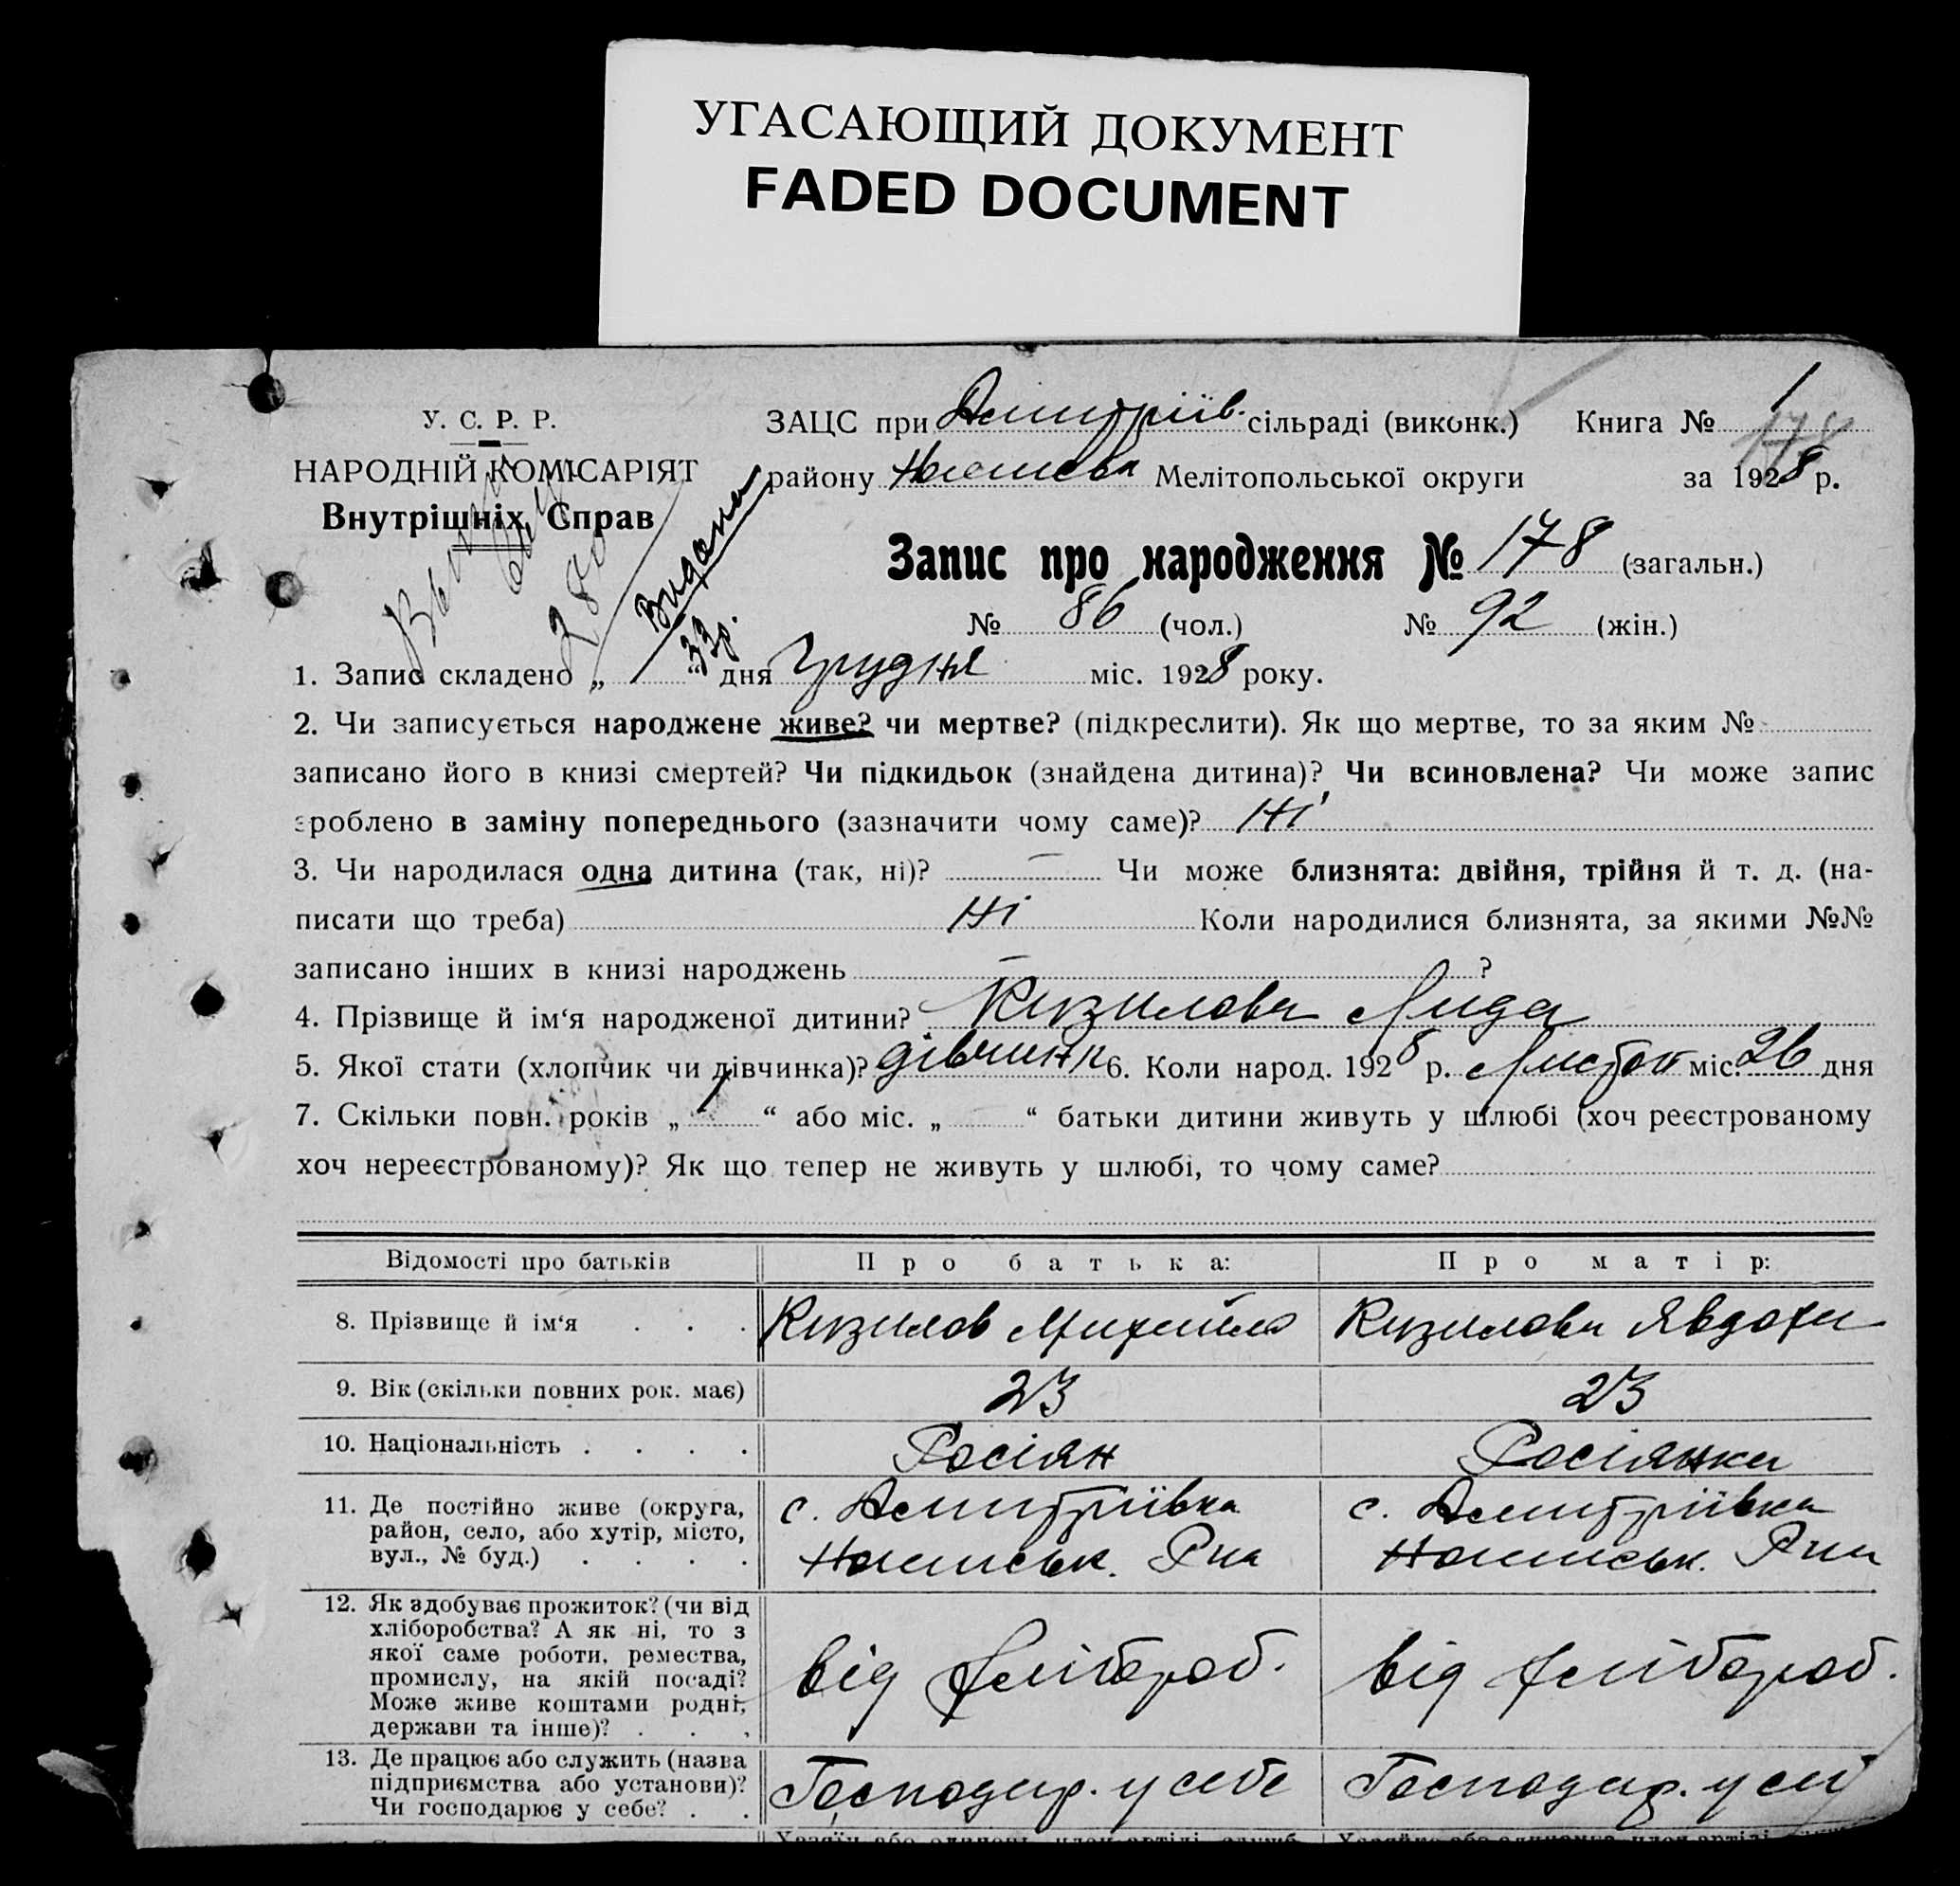 УГАСАЮЩИЙ ДОКУМЕНТ
FADED DOCUMENT
У. С. Р. Р.
НАРОДНІЙ КОМІСАРІЯТ
Внутрішніх Справ
Видана
33р.
ЗАЦС при Дмитріїв. сільраді (виконк.) Книга № 1
178
району Мелітопольської округи за 1928 р.
Запис про народження № 178 (загальн.)
№ 86 (чол.) № 92 (жін.)
1. Запис складено „ 1 “ дня Грудня міс. 1928 року.
2. Чи записується народжене живе? чи мертве? (підкреслити). Як що мертве, то за яким №
записано його в книзі смертей? Чи підкидьок (знайдена дитина)? Чи всиновлена? Чи може запис
зроблено в заміну попереднього (зазначити чому саме)? Ні
3. Чи народилася одна дитина (так, ні)? — Чи може близнята: двійня, трійня й т. д. (на-
писати що треба) Ні Коли народилися близнята, за якими №№
записано інших в книзі народжень — ?
4. Прізвище й ім‘я народженої дитини? Кизилова Лида
5. Якої стати (хлопчик чи дівчинка)? дівчинк 6. Коли народ. 1928 р. Листоп міс. 26 дня
7. Скільки повн. років „ 1 “ або міс. „ “ батьки дитини живуть у шлюбі (хоч реєстрованому
хоч нереєстрованому)? Як що тепер не живуть у шлюбі, то чому саме?
Відомості про батьків Про батька: Про матір:
8. Прізвище й ім‘я . . . Кизилов Михайло Кизилова Явдоха
9. Вік (скільки повних рок. має) 23 23
10. Національність . . . . Росіян Росіянка
11. Де постійно живе (округа, с. Дмитріївка с. Дмитріївка
район, село, або хутір, місто,
вул., № буд.) . . . . Рна Рна
12. Як здобуває прожиток? (чи від
хліборобства? А як ні, то з
якої саме роботи, ремества,
промислу, на якій посаді? від хлібороб. від хлібороб.
Може живе коштами родні,
держави та інше)? . . .
13. Де працює або служить (назва
підприємства або установи)? Господар. у себе Господар. у себ
Чи господарює у себе? . .